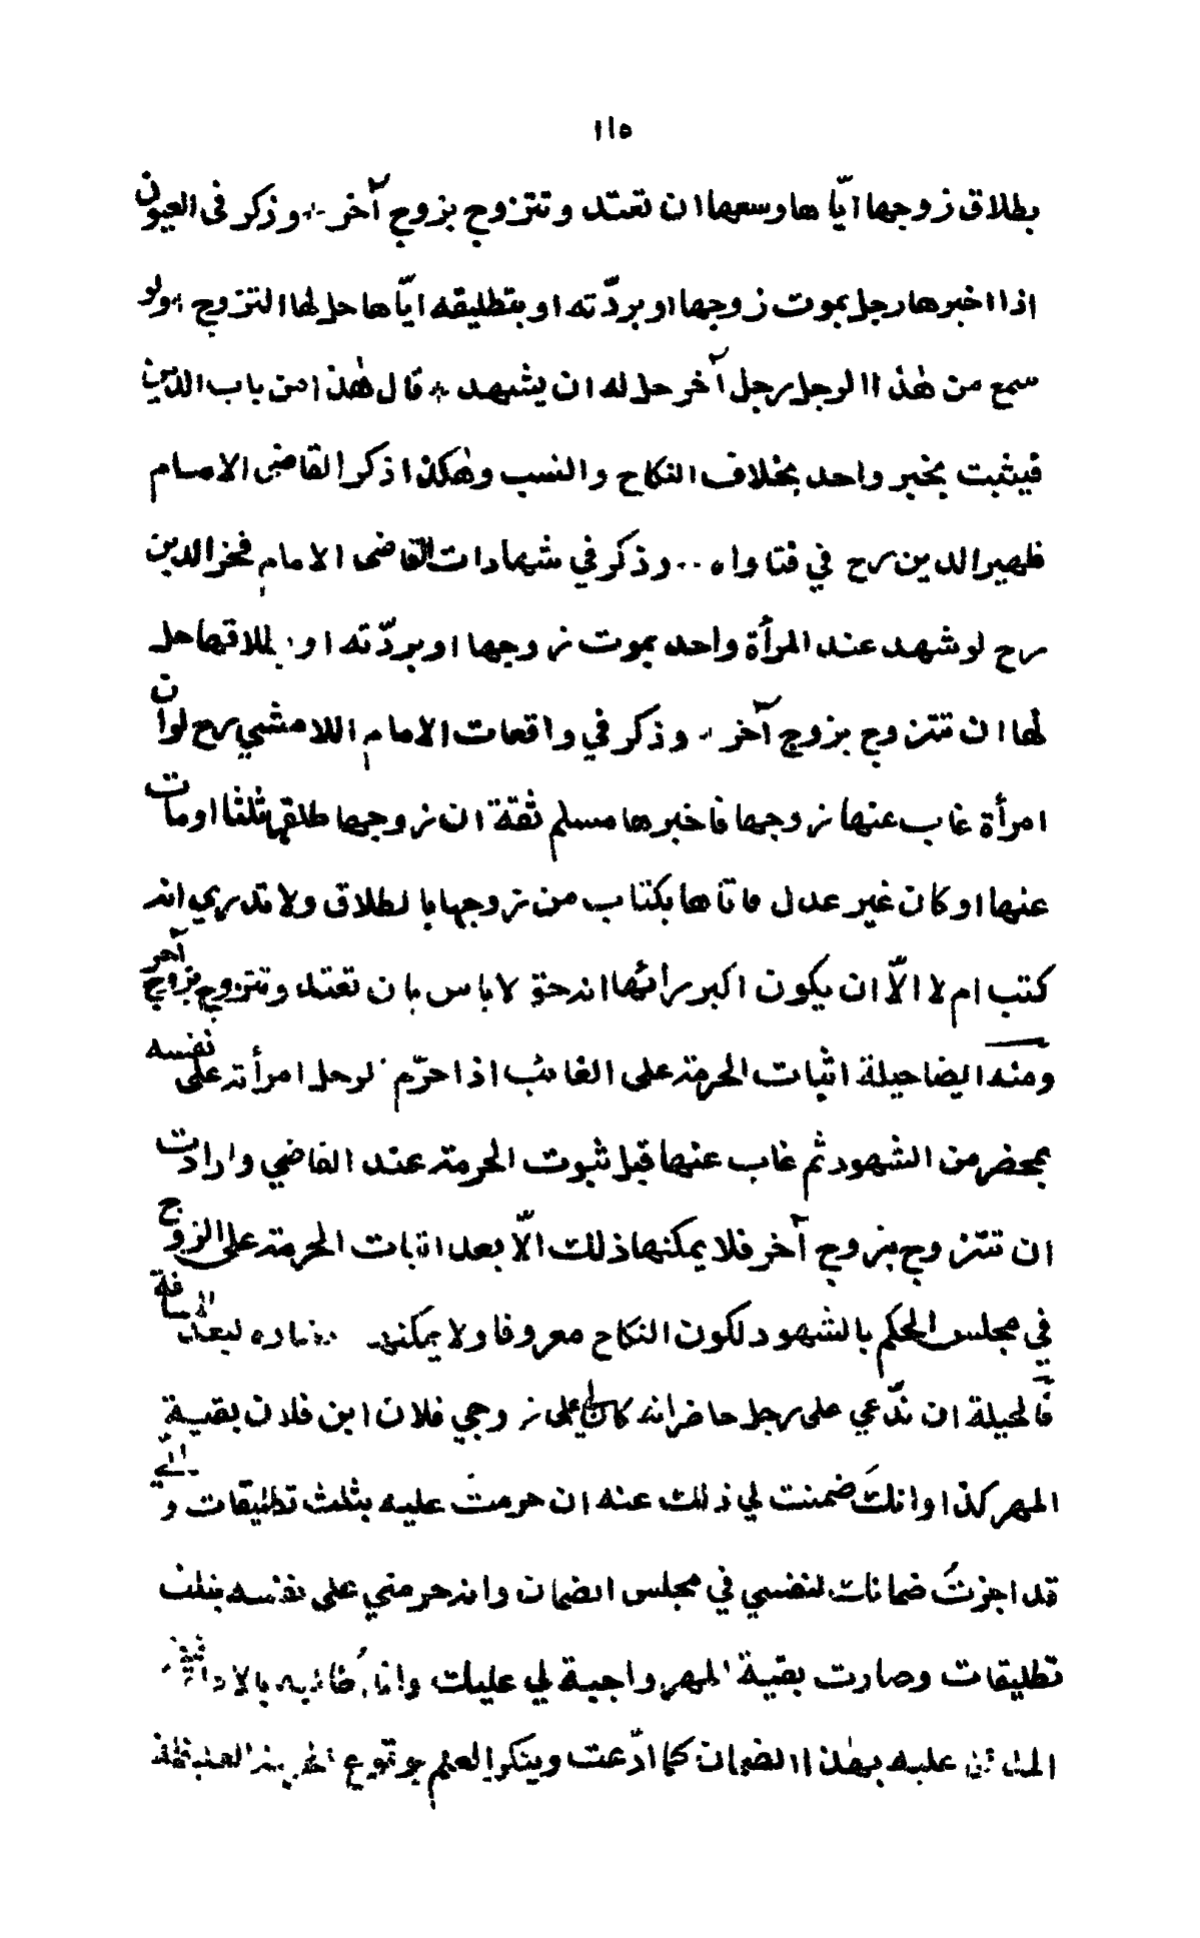 ١١٥
بطلاق زوجها ايّاها وسعها ان تعتد وتتزوج بزوج آخر وذكر فى العيون
اذا اخبرها رجل بموت زوجها او بردّته او بتطليقه ايّاها حل لها التزوج ولو
سمع من هٰذا الرجل رجل آخر حل له ان يشهد قال هٰذا من باب الدّين
فيثبت بخبر واحد بخلاف النكاح والنسب وهٰكذا ذكر القاضى الامام
ظهير الدين رح في فتاواه وذكر في شهادات القاضى الامام فخر الدين
رح لو شهد عند المرأة واحد بموت زوجها او بردّته او بطلاقها حل
لها ان تتزوج بزوج آخر وذكر في واقعات الامام اللامشي رح لو ان
امرأة غاب عنها زوجها فاخبرها مسلم ثقة ان زوجها طلقها ثلثا او مات
عنها او كان غير عدل فاتاها بكتاب من زوجها بالطلاق ولا تدري انه
كتب ام لا الّا ان يكون اكبر رائها انه حق لا باس بان تعتد وتتزوج بزوج آخر
ومنه ايضا حيلة اثبات الحرمة على الغائب اذا حرّم الرجل امرأته على نفسه
بمحضر من الشهود ثم غاب عنها قبل ثبوت الحرمة عند القاضي وارادت
ان تتزوج بزوج آخر فلا يمكنها ذلك الّا بعد اثبات الحرمة على الزوج
في مجلس الحكم بالشهود لكون النكاح معروفا ولا يمكنه لبعد المسافة
فالحيلة ان تدّعي على رجل حاضر انه كان لي على زوجي فلان ابن فلان بقية
المهر كذا وانكَ ضمنت لي ذلك عنه ان حرمت عليه بثلث تطليقات و
قد اجزتُ ضمانك لنفسي في مجلس الضمان وانه حرمني على نفسه بثلث
تطليقات وصارت بقية المهر واجبة لي عليك وانا بالاداء
عليه بهٰذا الضمان كما ادّعت وينكر العلم بوقوع